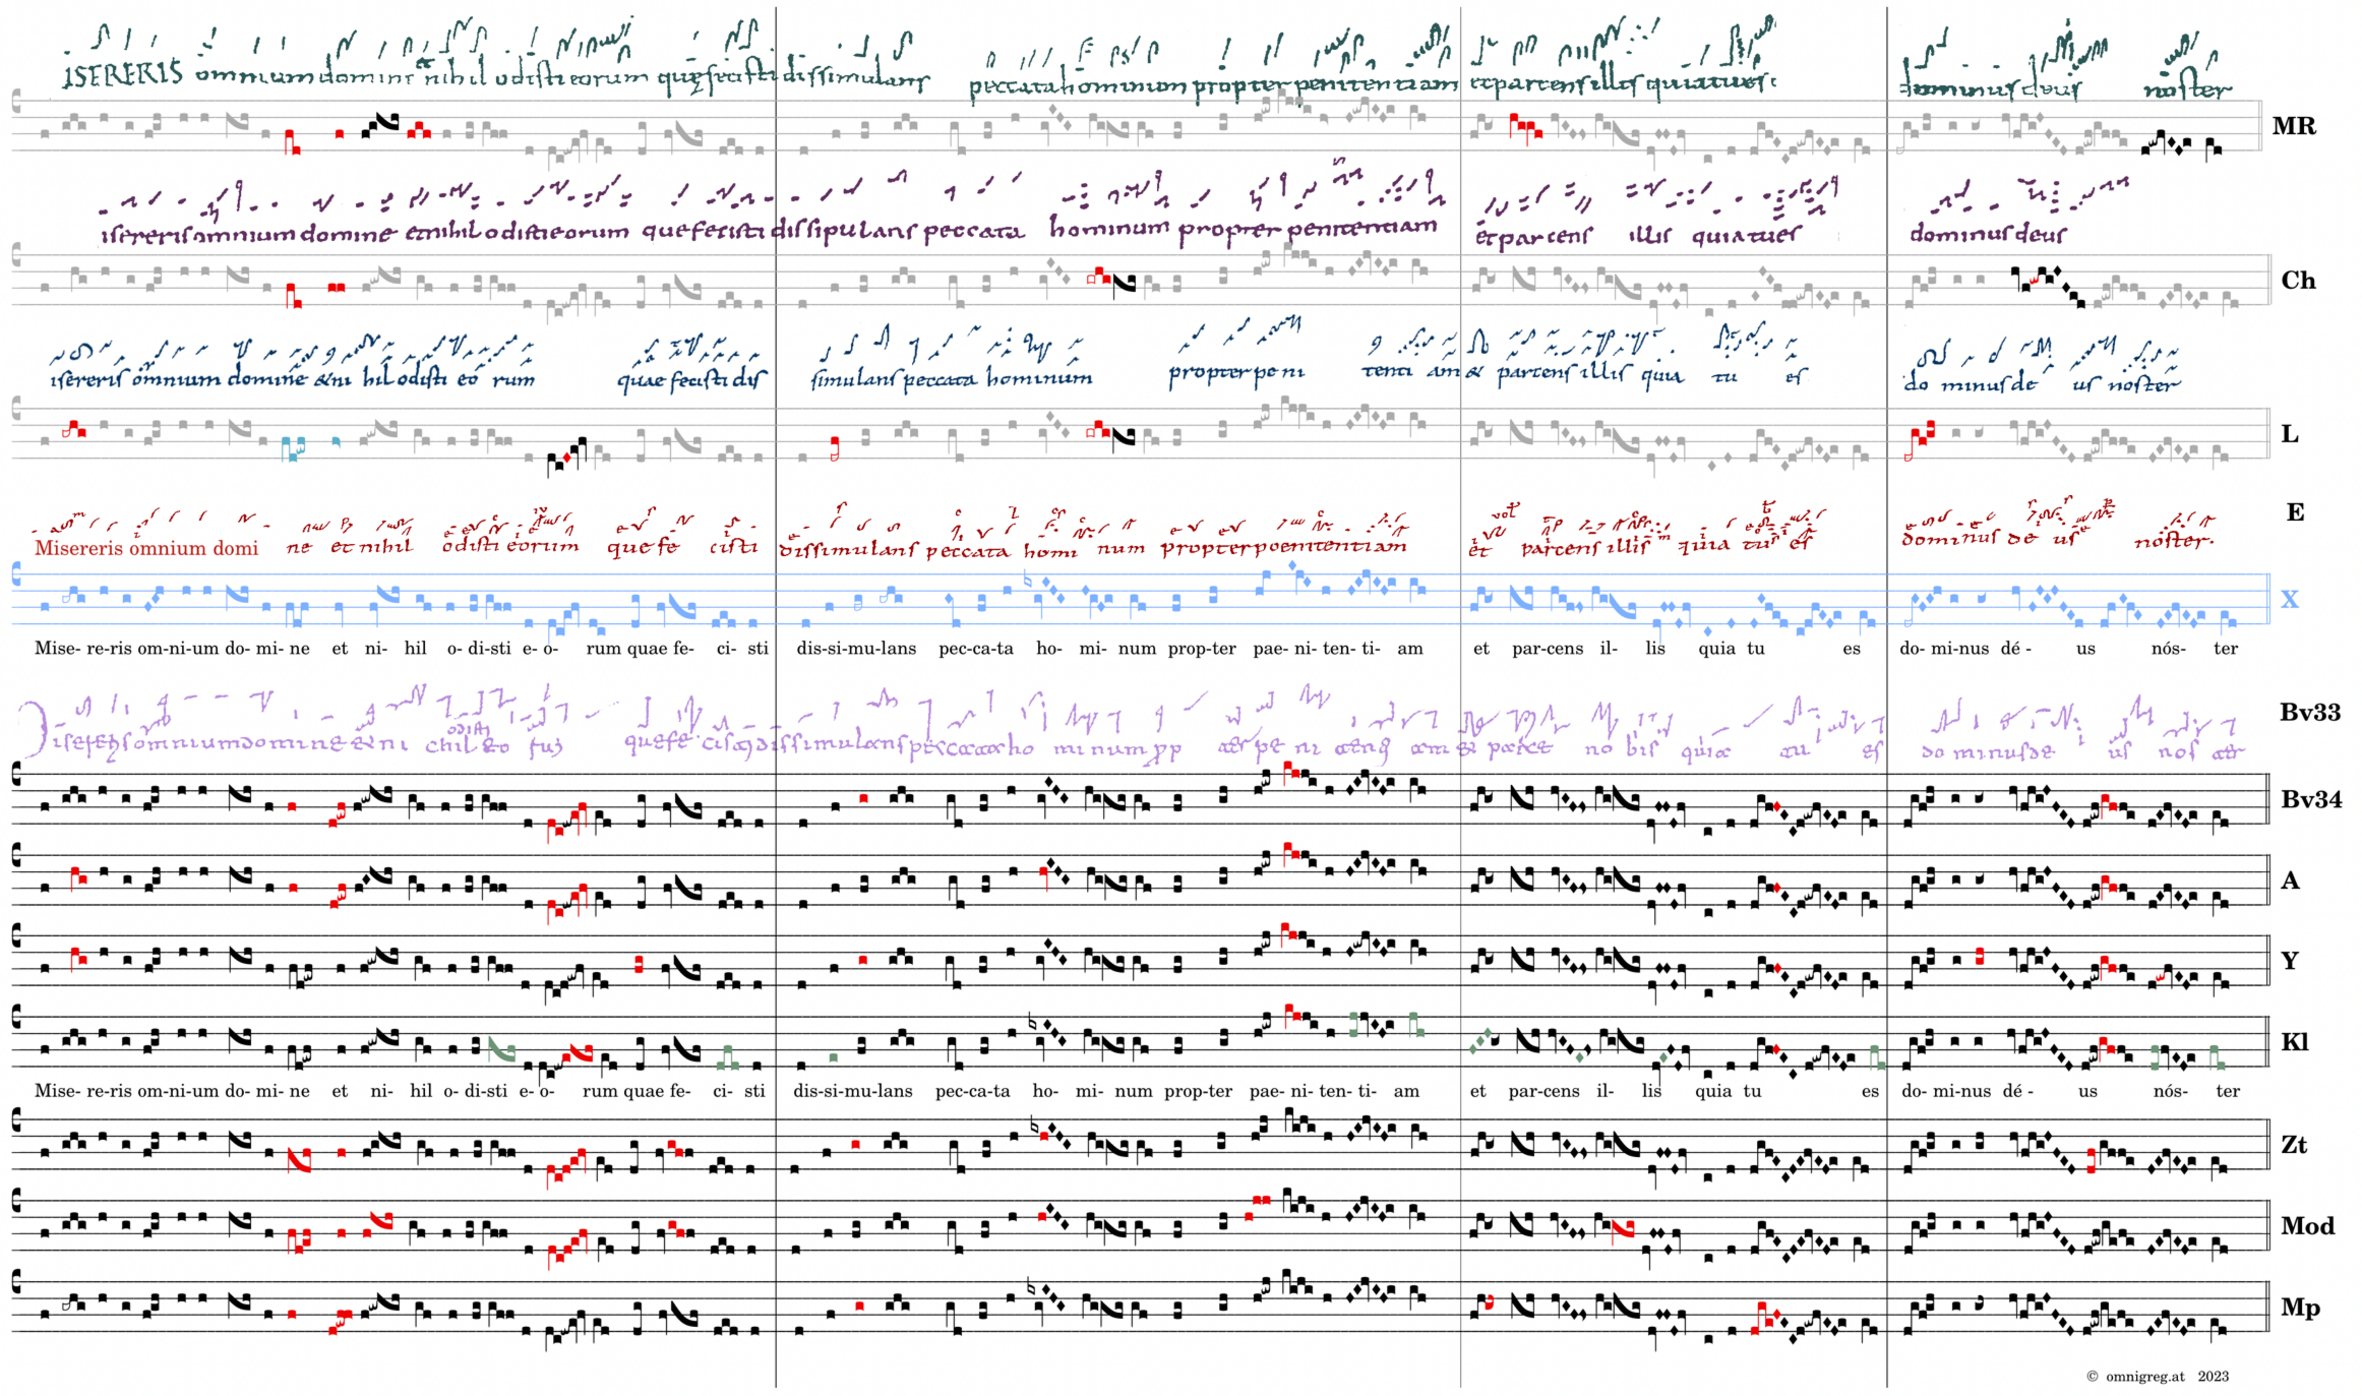 ISERERIS omnium domine et nihil odisti eorum quę fecisti dissimulans peccata hominum propter penitentiam et parcens illis quia tu es dominus deus noster
MR
isereris omnium domine et nihil odisti eorum que fecisti dissipulans peccata hominum propter penitentiam et parcens illis quia tu es dominus deus
Ch
isereris omnium domine & ni hil odisti eo rum quae fecisti dis simulans peccata hominum propter pe ni tenti am & parcens illis quia tu es do minus de us noster
L
Misereris omnium domi ne et nihil odisti eorum que fe cisti dissimulans peccata homi num propter poenitentiam et parcens illis quia tu es dominus de us noster.
E
X
Mise- re-ris om-ni-um do- mi- ne et ni- hil o- di-sti e- o- rum quae fe- ci- sti dis-si-mu-lans pec-ca-ta ho- mi- num prop-ter pae- ni- ten- ti- am et par-cens il- lis quia tu es do- mi-nus dé - us nós- ter
Bv33
Bv34
A
Y
Kl
Mise- re-ris om-ni-um do- mi- ne et ni- hil o- di-sti e- o- rum quae fe- ci- sti dis-si-mu-lans pec-ca-ta ho- mi- num prop-ter pae- ni- ten- ti- am et par-cens il- lis quia tu es do- mi-nus dé - us nós- ter
Zt
Mod
Mp
© omnigreg.at 2023